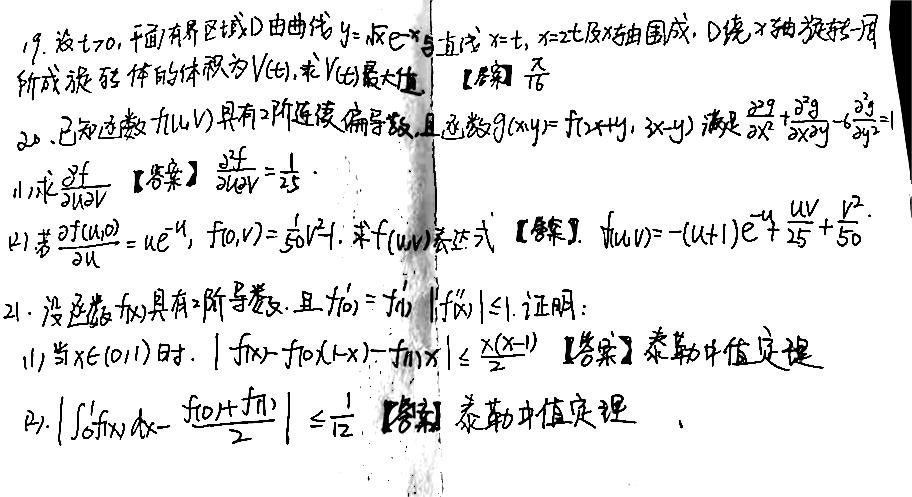 19. 设t>0,平面有界区域D由曲线y=√x e^{-x}与直线x=t,x=2t及x轴围成,D绕x轴旋转一周
所成旋转体的体积为V(t),求V(t)最大值 【答案】π/16
20.已知函数f(u,v)具有2阶连续偏导数,且函数g(x,y)=f(2x+y, 3x-y)满足∂²g/∂x²+∂²g/∂x∂y-6∂²g/∂y²=1
(1)求∂²f/∂u∂v 【答案】∂²f/∂u∂v=1/25.
(2)若∂f(u,0)/∂u=ue^{-u}, f(0,v)=1/50v²-1.求f(u,v)表达式 【答案】. f(u,v)=-(u+1)e^{-u}+uv/25+v²/50.
21.设函数f(x)具有2阶导数.且f'(0)=f'(1) |f''(x)|≤1.证明:
(1)当x∈(0,1)时. |f(x)-f(0)(1-x)-f(1)x|≤x(x-1)/2 【答案】泰勒中值定理
(2).|∫₀¹f(x)dx-(f(0)+f(1))/2|≤1/12 【答案】泰勒中值定理